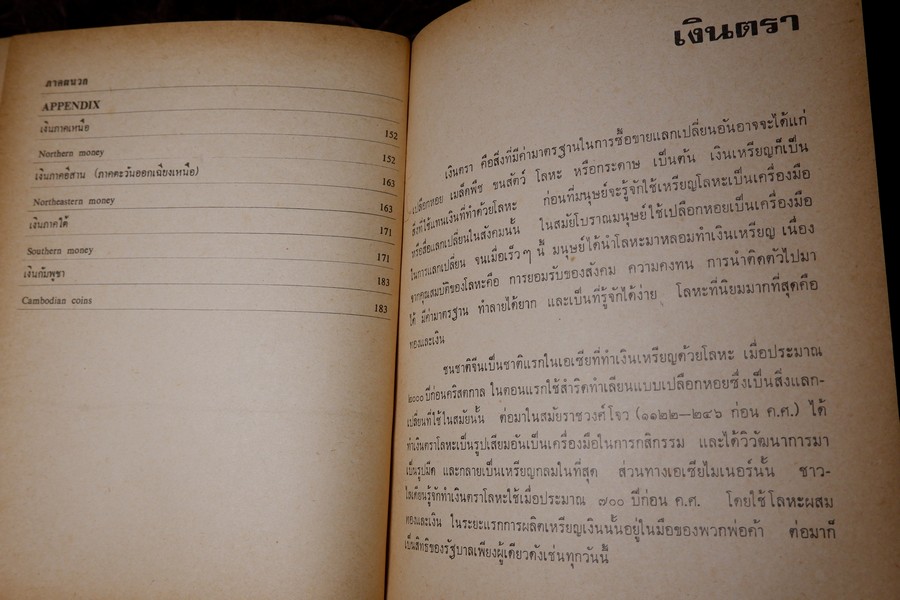 ภาคผนวก
APPENDIX
เงินภาคเหนือ 152
Northern money 152
เงินภาคอีสาน (ภาคตะวันออกเฉียงเหนือ) 163
Northeastern money 163
เงินภาคใต้ 171
Southern money 171
เงินกัมพูชา 183
Cambodian coins 183
เงินตรา
เงินตรา คือสิ่งที่มีค่ามาตรฐานในการซื้อขายแลกเปลี่ยนอันอาจจะได้แก่
เปลือกหอย เมล็ดพืช ขนสัตว์ โลหะ หรือกระดาษ เป็นต้น เงินเหรียญก็เป็น
สิ่งที่ใช้แทนเงินที่ทำด้วยโลหะ ก่อนที่มนุษย์จะรู้จักใช้เหรียญโลหะเป็นเครื่องมือ
หรือสื่อแลกเปลี่ยนในสังคมนั้น ในสมัยโบราณมนุษย์ใช้เปลือกหอยเป็นเครื่องมือ
ในการแลกเปลี่ยน จนเมื่อเร็วๆ นี้ มนุษย์ได้นำโลหะมาหลอมทำเงินเหรียญ เนื่อง
จากคุณสมบัติของโลหะคือ การยอมรับของสังคม ความคงทน การนำติดตัวไปมา
ได้ มีค่ามาตรฐาน ทำลายได้ยาก และเป็นที่รู้จักได้ง่าย โลหะที่นิยมมากที่สุดคือ
ทองและเงิน
ชนชาติจีนเป็นชาติแรกในเอเซียที่ทำเงินเหรียญด้วยโลหะ เมื่อประมาณ
๒๐๐๐ ปีก่อนคริสตกาล ในตอนแรกใช้สำริดทำเลียนแบบเปลือกหอยซึ่งเป็นสิ่งแลก-
เปลี่ยนที่ใช้ในสมัยนั้น ต่อมาในสมัยราชวงศ์โจว (๑๑๒๒—๒๔๖ ก่อน ค.ศ.) ได้
ทำเงินตราโลหะเป็นรูปเสียมอันเป็นเครื่องมือในการกสิกรรม และได้วิวัฒนาการมา
เป็นรูปมีด และกลายเป็นเหรียญกลมในที่สุด ส่วนทางเอเซียไมเนอร์นั้น ชาว-
ไลเดียนรู้จักทำเงินตราโลหะใช้เมื่อประมาณ ๗๐๐ ปีก่อน ค.ศ. โดยใช้โลหะผสม
ทองและเงิน ในระยะแรกการผลิตเหรียญเงินนั้นอยู่ในมือของพวกพ่อค้า ต่อมาก็
เป็นสิทธิของรัฐบาลเพียงผู้เดียวดังเช่นทุกวันนี้